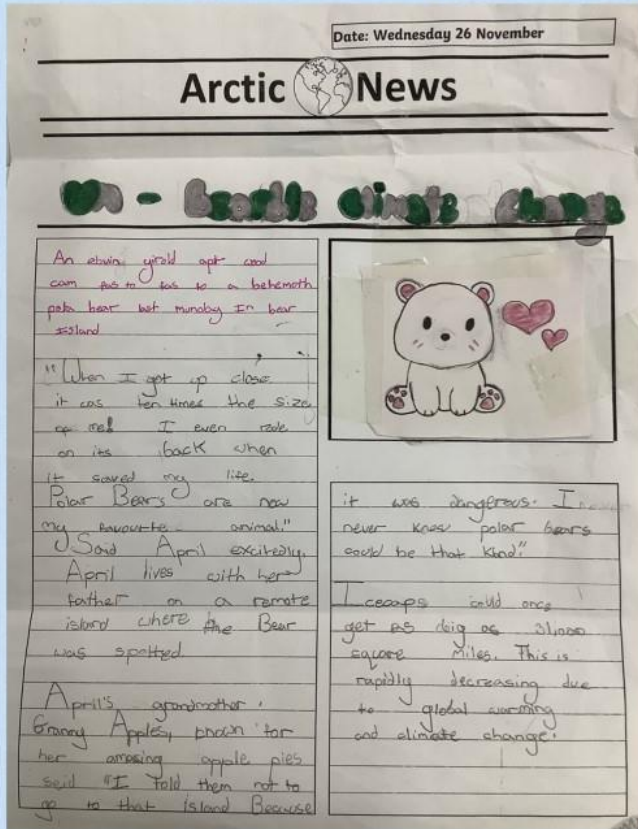 Date: Wednesday 26 November
Arctic News
climate change
An
cam to a behemoth
bear last In bear
Island
"When I got up close
it was ten times the size
of me! I even rode
on its back when
it saved my life.
Polar Bears are now
my favourite animal."
Said April excitedly.
April lives with her
father on a remote
island where the Bear
was spotted
April's grandmother,
Granny Apples, for
her amazing apple pies
said "I told them not to
go to that island Because
it was dangerous. I
never knew polar bears
could be that kind."
Icecaps could once
get as big as 31,000
square Miles. This is
rapidly decreasing due
to global warming
and climate change.